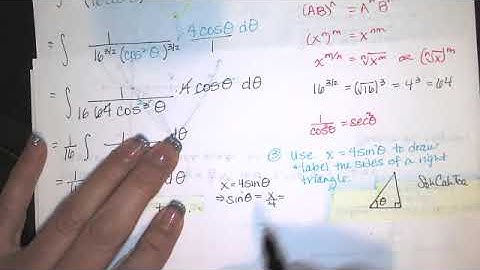 ∫ 1/(16^{3/2} (cos²θ)^{3/2}) · 4cosθ dθ/1
∫ 1/(16 64 cos³θ) · 4 cosθ dθ
= 1/16 ∫ 1 dθ
= 1/16 ∫ dθ
(AB)ⁿ = AⁿBⁿ
(xⁿ)ᵐ = x^{nm}
x^{m/n} = ⁿ√xᵐ or (ⁿ√x)ᵐ
16^{3/2} = (√16)³ = 4³ = 64
1/cos²θ = sec²θ
③ Use x = 4sinθ to draw
+ label the sides of a right
triangle.
x = 4sinθ
⇒ sinθ = x/4 =
θ
Soh Cah Toa